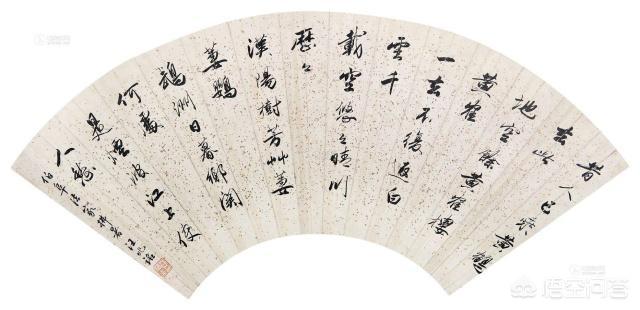 昔人已乘黃鶴
去此
地空餘黃崔樓
黃崔
一去不復返白
雲千
載空悠々晴川
歷々
漢陽樹芳艸萋
萋鸚
鵡洲日暮鄉關
何處
是煙波江上使
人愁
伯年法家
悟空问答